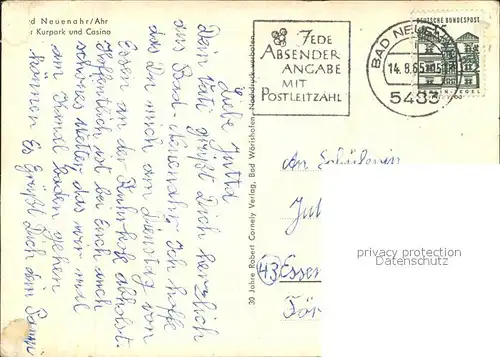 ad Neuenahr/Ahr
r Kurpark und Casino
Liebe Jutta
Dein Vati grüßt Dich herzlich
aus Bad-Neuenahr. Ich hoffe
das Du mich am Dienstag von
Essen an der Autobahn abholst.
Hoffentlich ist bei Euch auch
schönes Wetter das wir mal
am Kanal baden gehen
können Es grüßt Dich dein Papa
30 Jahre Robert Cornely Verlag, Bad Wörishofen, Nachdruck verboten
JEDE
ABSENDER
ANGABE
MIT
POSTLEITZAHL
BAD NEUEN
14.8.65
5483
DEUTSCHE BUNDESPOST
An Schülerin
Jut
43 Essen
För
privacy protection
Datenschutz